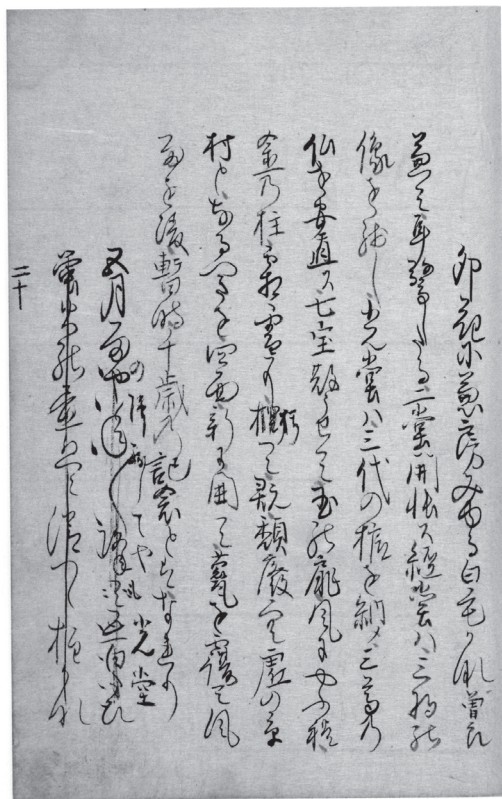 卯花に兼房みゆる白毛かな 曽良
兼て耳驚したる二堂開帳ス経堂ハ三将の
像をのこし光堂ハ三代の棺を納メ三尊の
仏を安置ス七宝散うせて玉の扉風にやふれ
金の柱霜雪に朽て既頽廃空虚の草
村と成へきを四面新に囲て甍を覆て風
雨を凌暫時千歳の記念とハなれり
の降残してや光堂
五月雨や年々降て五百たひ
蛍火の昼は消つゝ柱かな
二十